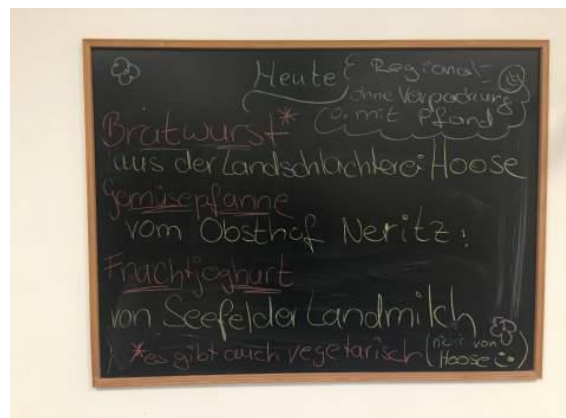 Heute
Regional-
ohne Verpackung
o. mit Pfand
Bratwurst*
aus der Landschlachterei Hoose
Gemüsepfanne
vom Obsthof Neritz:
Fruchtjoghurt
von Seefelder Landmilch
*es gibt auch vegetarisch (nicht von
Hoose